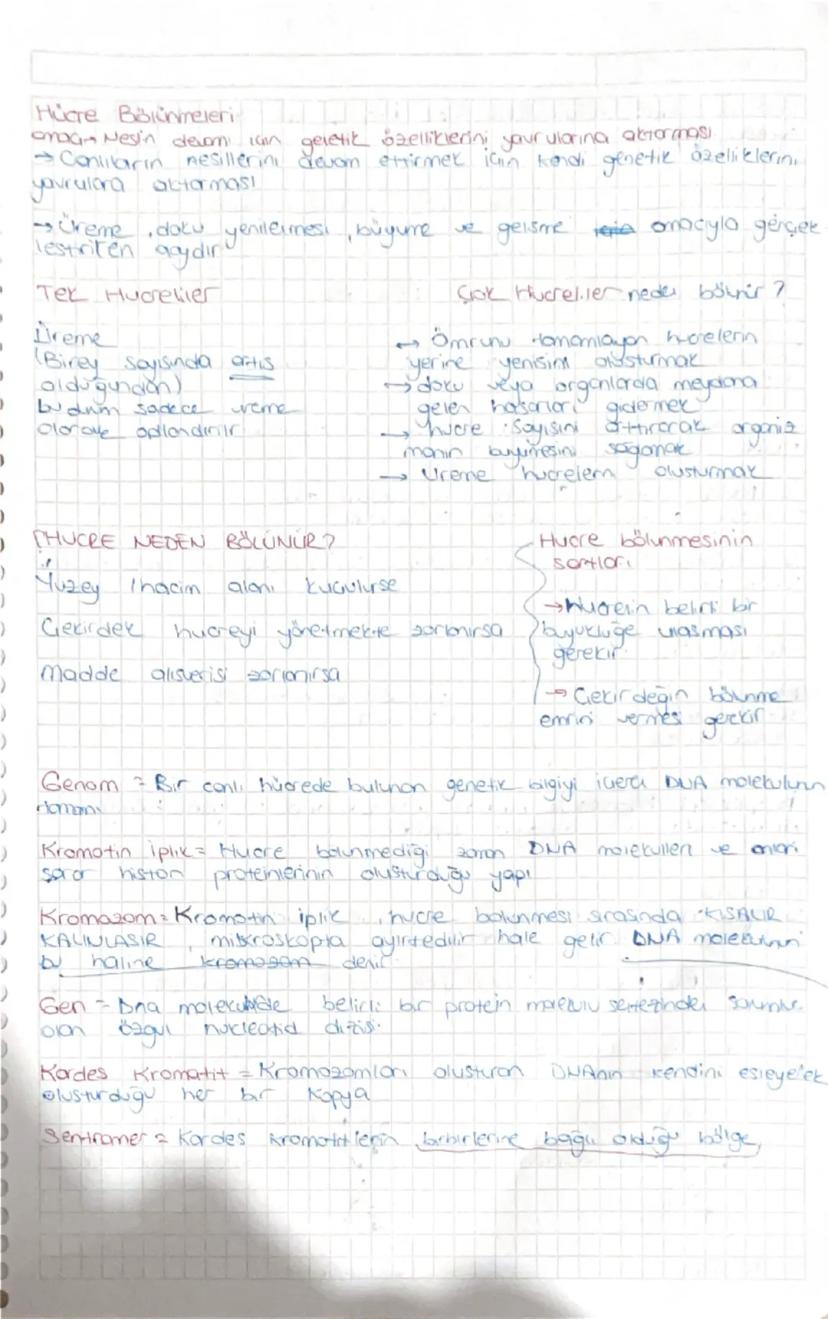 Hücre Bölünmeleri
amaç→ Neslin devamı için genetik özelliklerini yavrularına aktarması
→ Canlıların nesillerini devam ettirmek için kendi genetik özelliklerini
yavrulara aktarması
→ Üreme, doku yenilenmesi, büyüme ve gelişme amacıyla gerçek
leştirilen olaydır
Tek Hücreliler
Üreme
(Birey sayısında artış
olduğundan)
bu durum sadece üreme
olarak adlandırılır
Çok Hücreliler neden bölünür?
→ Ömrünü tamamlayan hücrelerin
yerine yenisini oluşturmak
→ doku veya organlarda meydana
gelen hasarları gidermek
→ hücre sayısını arttırarak organiz
manın büyümesini sağlamak
→ Üreme hücrelerini oluşturmak
HÜCRE NEDEN BÖLÜNÜR?
Yüzey / hacim alanı küçülürse
Çekirdek hücreyi yönetmekte zorlanırsa
Madde alışverişi zorlanırsa
Hücre bölünmesinin
şartları
→ Hücrein belirli bir
büyüklüğe ulaşması
gerekir.
→ Çekirdeğin bölünme
emrini vermesi gerekir
Genom = Bir canlı hücrede bulunan genetik bilgiyi içeren DNA molekülünün
tamamı
Kromatin iplik = Hücre bölünmediği zaman DNA molekülleri ve onları
sarar histon proteinlerinin oluşturduğu yapı
Kromazom = Kromatin iplik, hücre bölünmesi sırasında KISALIR
KALINLAŞIR, mikroskopta ayırtedilir hale gelir DNA molekülünün
bu haline kromozom denir
Gen = Dna molekülünde belirli bir protein molekülü sentezinden sorumlu
olan özgül nucleotid dizisi.
Kardeş Kromatit = Kromozomları oluşturan DNAnın kendini eşleyerek
oluşturduğu her bir kopya
Sentromer = Kardeş kromatitlerin birbirlerine bağlı olduğu bölge